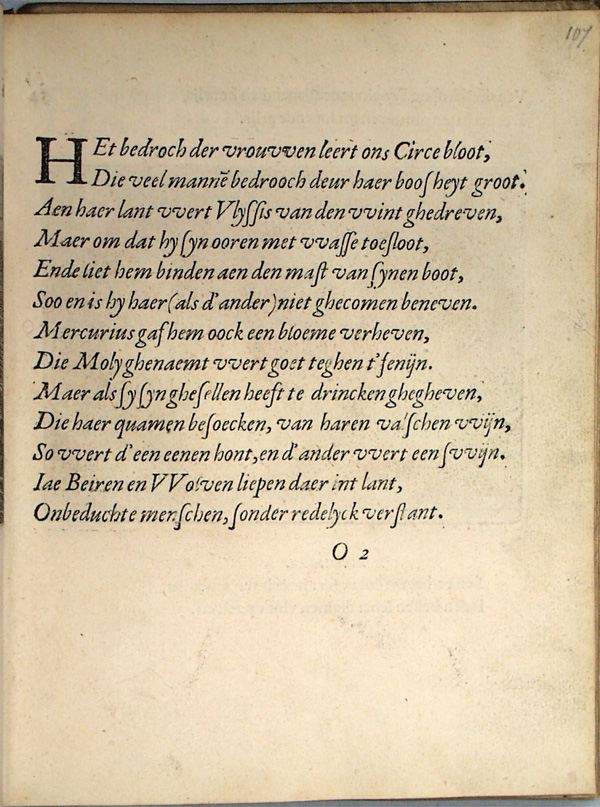 107
HEt bedroch der vrouvven leert ons Circe bloot,
Die veel mannẽ bedrooch deur haer booſheyt groot.
Aen haer lant vvert Vlyſſis van den vvint ghedreven,
Maer om dat hy ſyn ooren met vvaſſe toeſloot,
Ende liet hem binden aen den maſt van ſynen boot,
Soo en is hy haer (als d'ander) niet ghecomen beneven.
Mercurius gaf hem oock een bloeme verheven,
Die Moly ghenaemt vvert goet teghen t'fenijn.
Maer als ſy ſyn gheſellen heeft te drincken ghegheven,
Die haer quamen beſoecken, van haren valſchen vvijn,
So vvert d'een eenen hont, en d'ander vvert een ſvvijn.
Iae Beiren en VVolven liepen daer int lant,
Onbeduchte menſchen, ſonder redelyck verſtant.
O 2